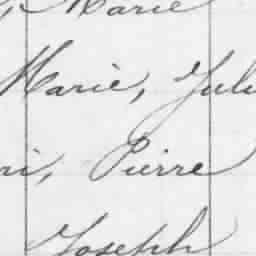 , Marie
Marie, Juli
ri, Pierre
Joseph